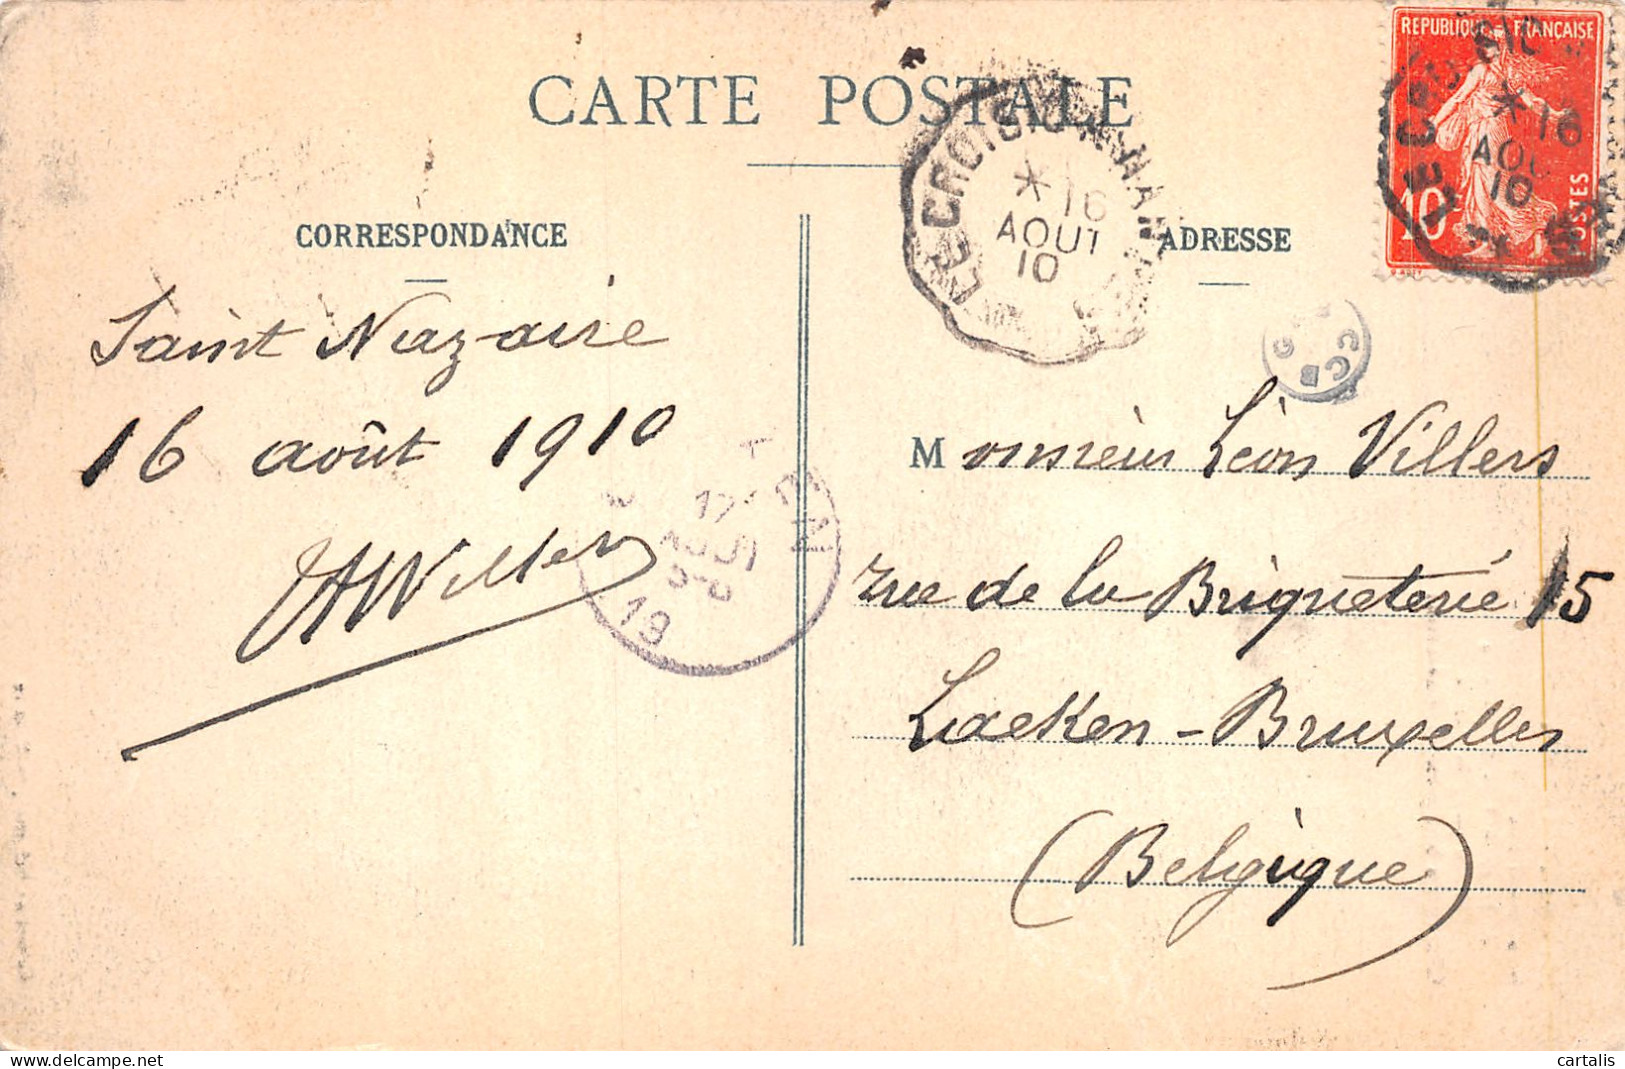 CARTE POSTALE
CORRESPONDANCE
Saint Nazaire
16 août 1910
ADRESSE
REPUBLIQUE FRANÇAISE
10
POSTES
LE CROISIC
* 16
AOUT
10
LE CROISIC
* 16
AOU
10
Monsieur Léon Villers
rue de la Briqueterie 15
Laeken - Bruxelles
(Belgique)
17
19
cartalis